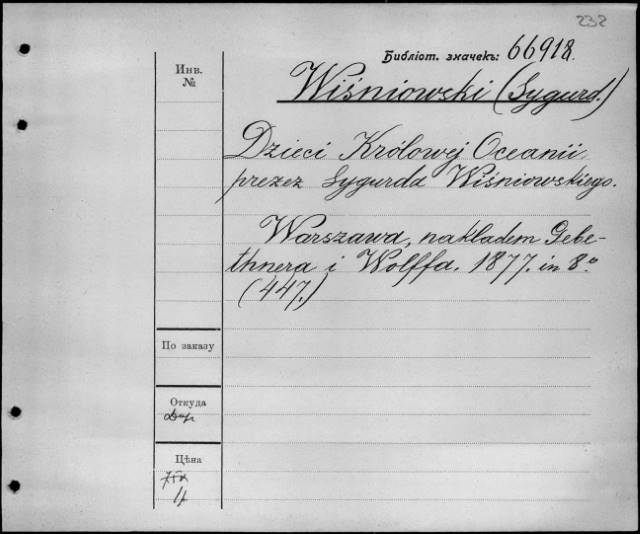 232
Библіот. значекъ: 66918.
Инв.
№
Wiśniowski (Sygurd.)
Dzieci Królowej Oceanii,
przez Sygurda Wiśniowskiego.
Warszawa, nakładem Gebe-
thnera i Wolffa. 1877. in 8.°
(447.)
По заказу
Откуда
Дар
Цѣна